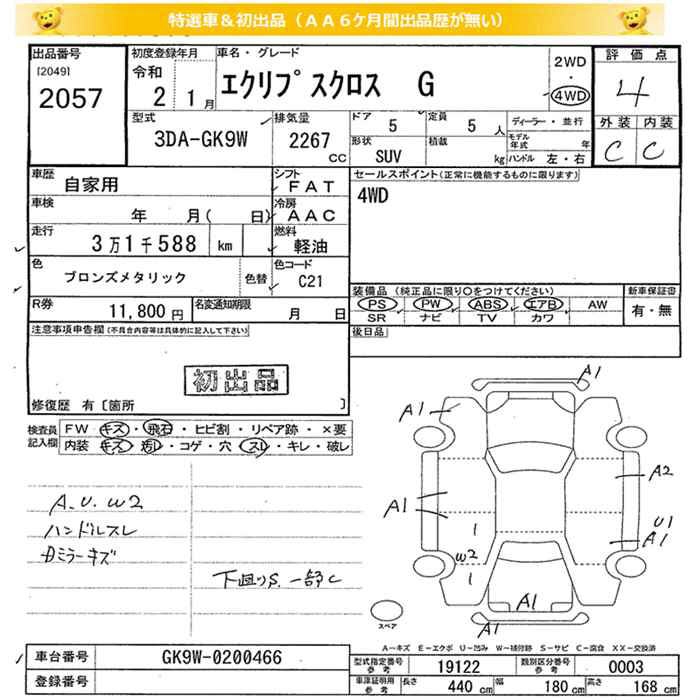 特選車&初出品（AA6ケ月間出品歴が無い）
出品番号 初度登録年月 車名・グレード 2WD ・ 4WD 評価点
[2049] 2057 令和 2 1月 エクリプスクロス G 4
型式 排気量 ドア 5 定員 5人 ディーラー・並行 外装 内装
3DA-GK9W 2267 CC 形状 SUV 積載 kg モデル年式 年 C C
ハンドル 左・右
車歴 自家用 シフト FAT セールスポイント(正常に機能するものに限ります)
車検 年 月( 日) 冷房 AAC 4WD
走行 3万1千588 km 燃料 軽油
色 ブロンズメタリック 色替 色コード C21
装備品（純正品に限り○をつけてください） 新車保証書
PS PW ABS エアB AW 有・無
SR ナビ TV カワ
R券 11,800円 名変通知期限 月 日
後日品
注意事項申告欄(不具合内容等は具体的に記入して下さい)
初出品
修復歴 有〔箇所 〕
検査員記入欄 FW キズ・飛石・ヒビ割・リペア跡・×要
内装 キズ・汚レ・コゲ・穴・スレ・キレ・破レ
A.U.W2
ハンドルスレ
ミラーキズ
下廻りS.一部C
A1
A1
A2
A1
U1
A1
1
W2
1
A1
A1
スペア
A－キズ E－エクボ U－凹み W－補修跡 S－サビ C－腐食 XX－交換済
車台番号 GK9W-0200466
登録番号
型式指定番号 参考 19122 類別区分番号 参考 0003
車庫証明用 参考 長さ 440 cm 幅 180 cm 高さ 168 cm